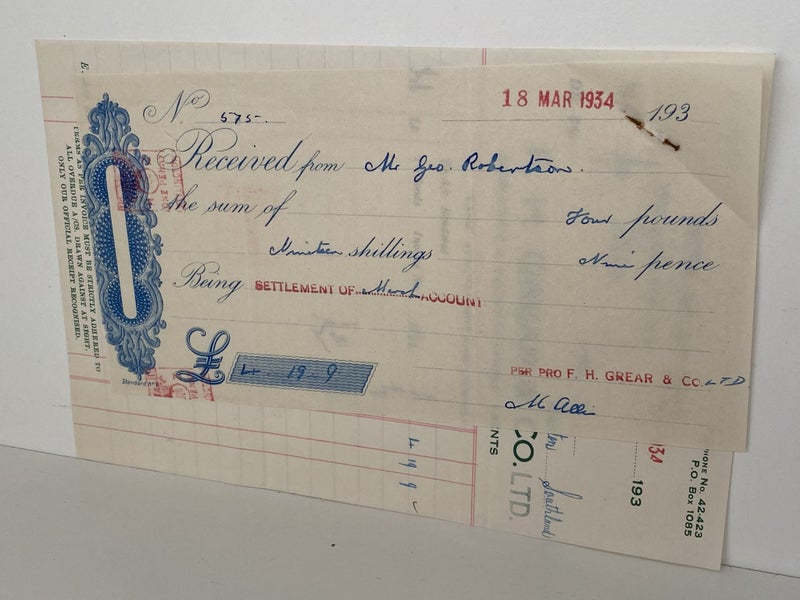 No 575.
18 MAR 1934 193
Received from Mr Geo. Robertson.
the sum of Four pounds
Nineteen shillings Nine pence
Being SETTLEMENT OF March ACCOUNT
£ 4. 19. 9
PER PRO F. H. GREAR & CO. LTD
Standard
ITEMS AS PER INVOICE MUST BE STRICTLY ADHERED TO
ALL OVERDUE A/CS. DRAWN AGAINST AT SIGHT.
ONLY OUR OFFICIAL RECEIPT RECOGNISED.
E.
ONE PENNY
4 19 9
CO. LTD.
NTS
Southland
193
PHONE No. 42-423
P.O. Box 1085